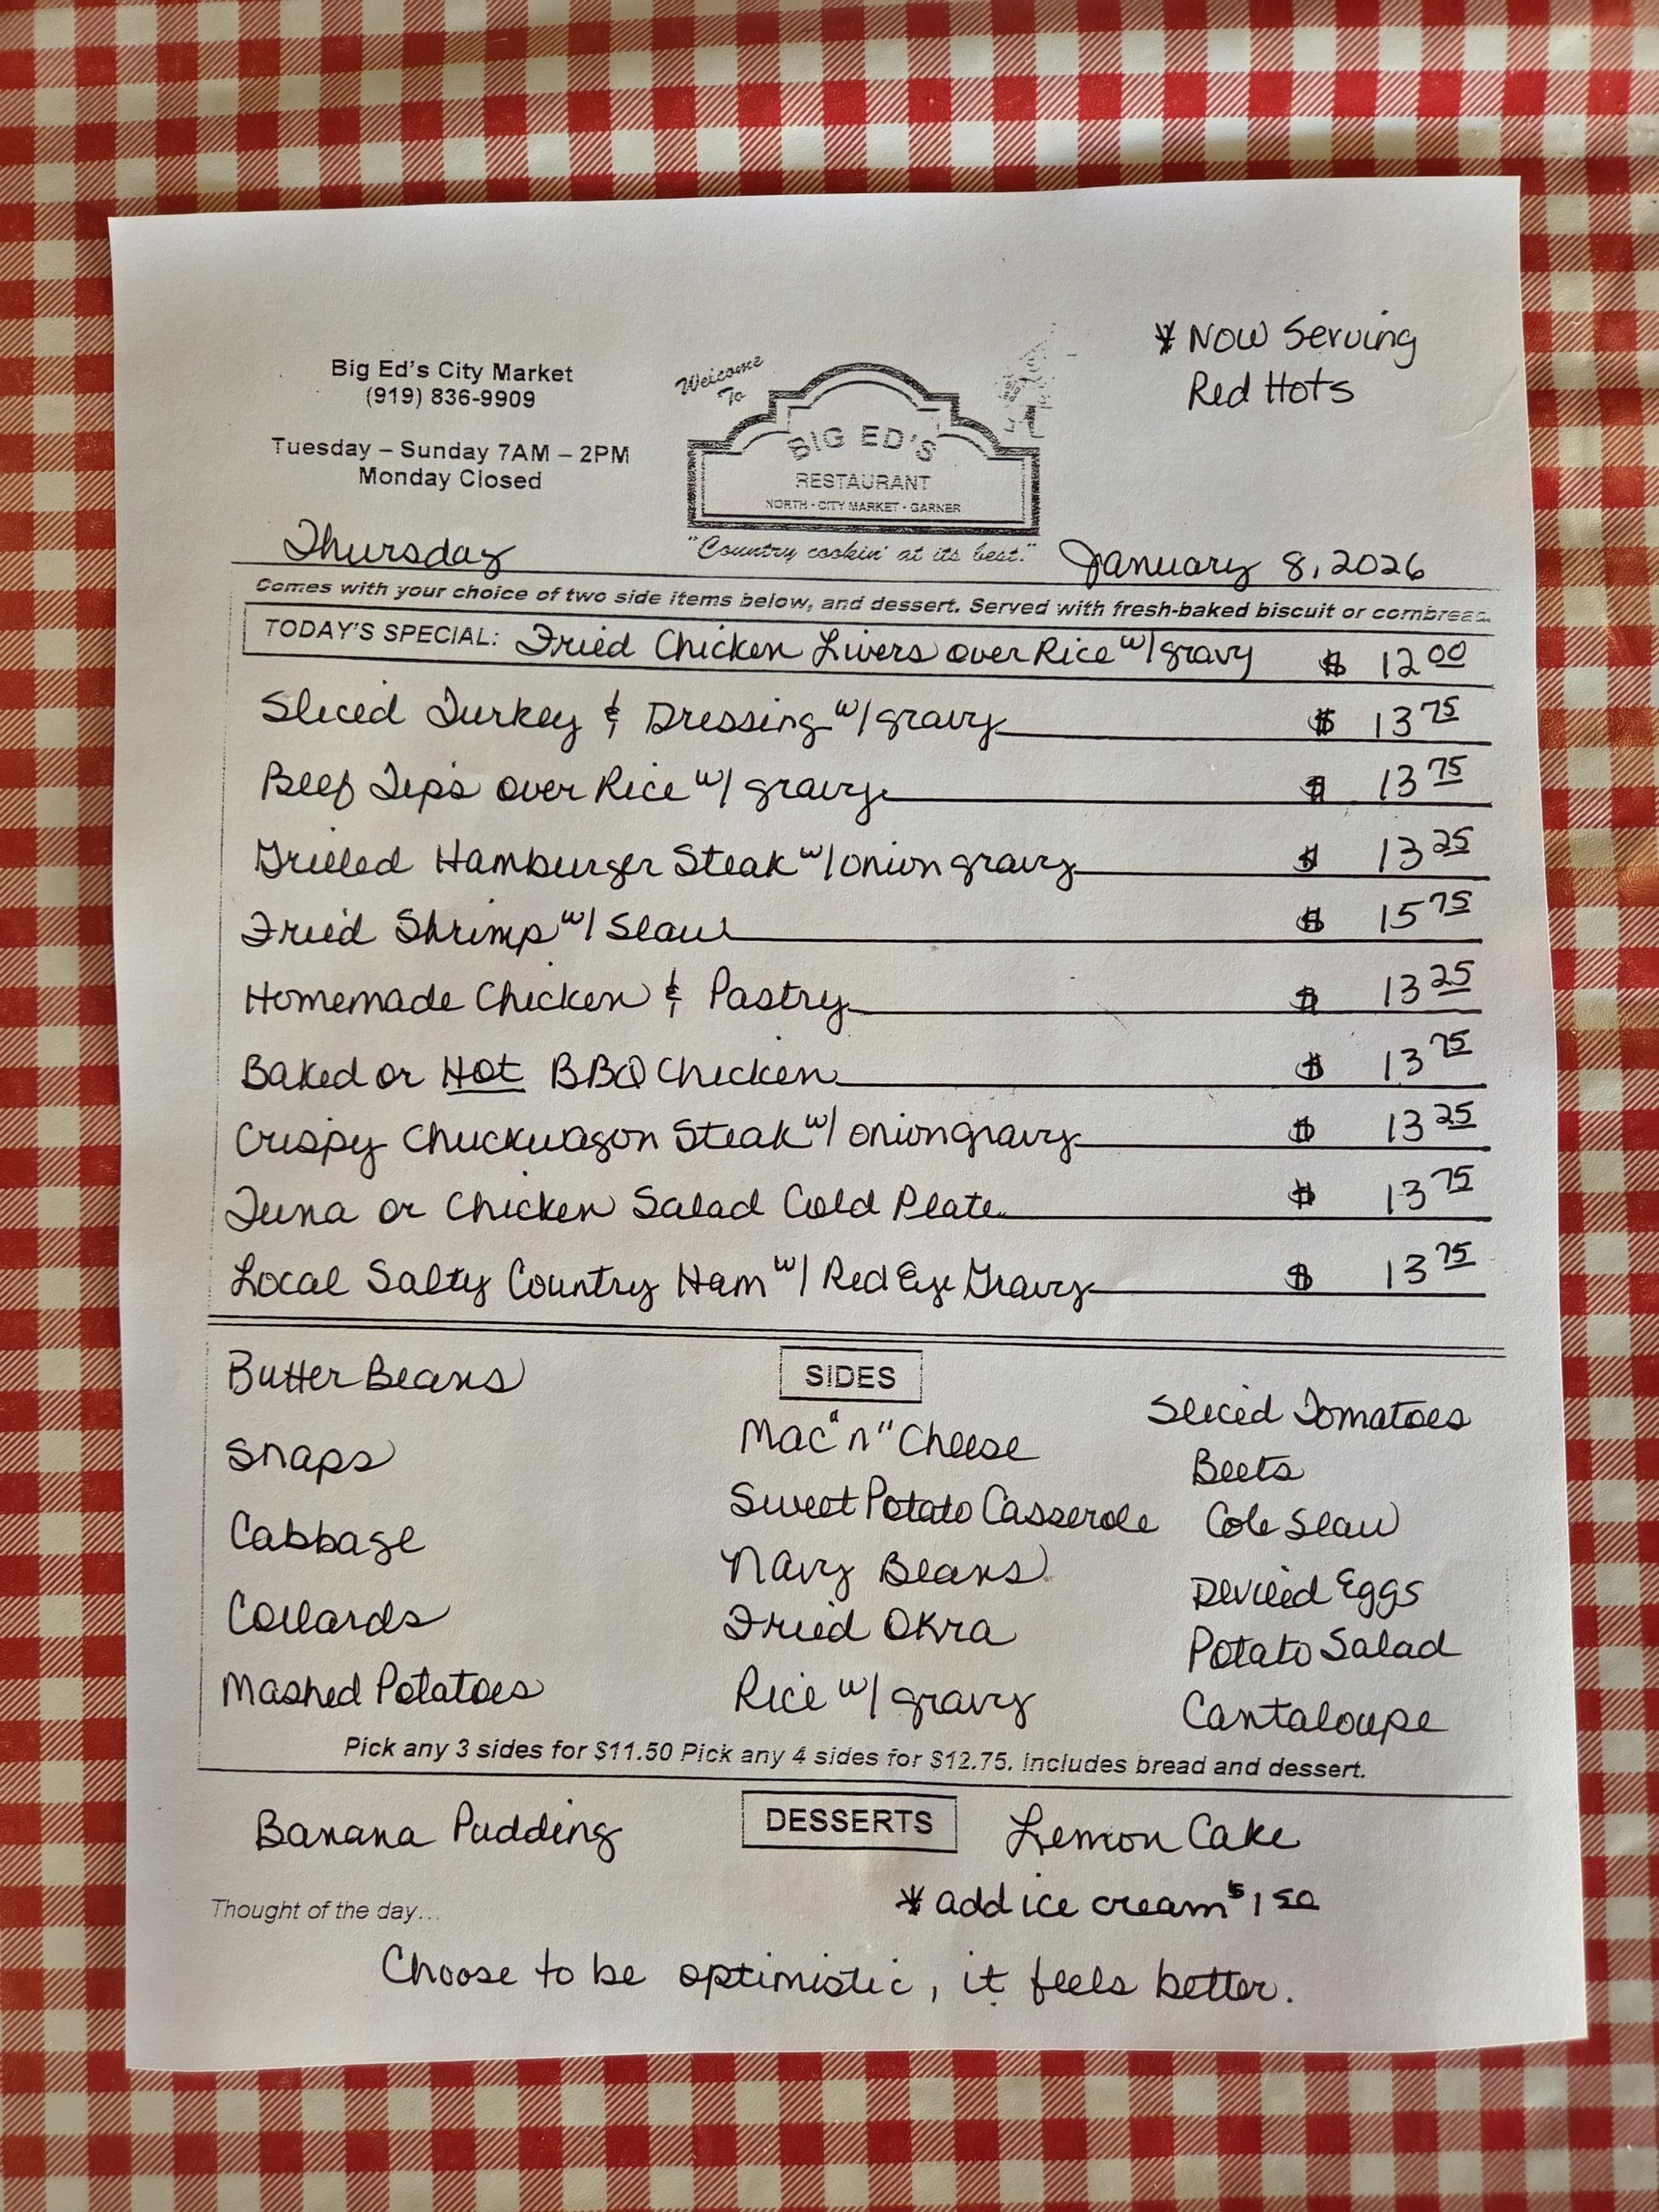 * Now Serving
Red Hots
Big Ed's City Market
(919) 836-9909
Tuesday – Sunday 7AM – 2PM
Monday Closed
Welcome
To
BIG ED'S
RESTAURANT
NORTH - CITY MARKET - GARNER
"Country cookin' at its best."
Thursday
January 8, 2026
Comes with your choice of two side items below, and dessert. Served with fresh-baked biscuit or cornbread.
TODAY'S SPECIAL: Fried Chicken Livers over Rice w/ gravy $ 12 00
Sliced Turkey & Dressing w/ gravy $ 13 75
Beef Tips over Rice w/ gravy $ 13 75
Grilled Hamburger Steak w/ onion gravy $ 13 25
Fried Shrimp w/ Slaw $ 15 75
Homemade Chicken & Pastry $ 13 25
Baked or Hot BBQ Chicken $ 13 75
Crispy Chuckwagon Steak w/ onion gravy $ 13 25
Tuna or Chicken Salad Cold Plate $ 13 75
Local Salty Country Ham w/ Red Eye Gravy $ 13 75
SIDES
Butter Beans
Snaps
Cabbage
Collards
Mashed Potatoes
Mac "n" Cheese
Sweet Potato Casserole
Navy Beans
Fried Okra
Rice w/ gravy
Sliced Tomatoes
Beets
Cole Slaw
Deviled Eggs
Potato Salad
Cantaloupe
Pick any 3 sides for $11.50 Pick any 4 sides for $12.75. Includes bread and dessert.
DESSERTS
Banana Pudding
Lemon Cake
* add ice cream $1 50
Thought of the day...
Choose to be optimistic, it feels better.